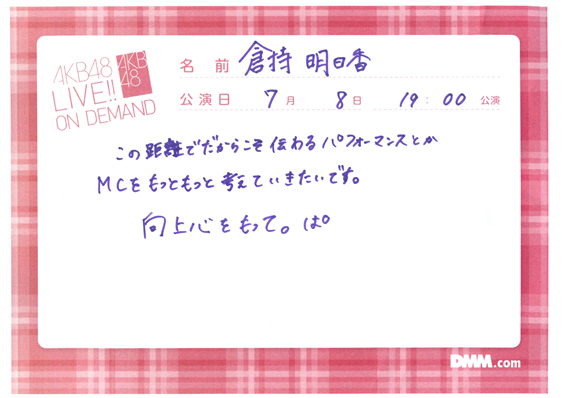 AKB48
LIVE!!
ON DEMAND
AKB
48
名前 倉持 明日香
公演日 7月 8日 19:00 公演
この距離でだからこそ伝わるパフォーマンスとか
MCをもっともっと考えていきたいです。
向上心をもって。ぱ
DMM.com